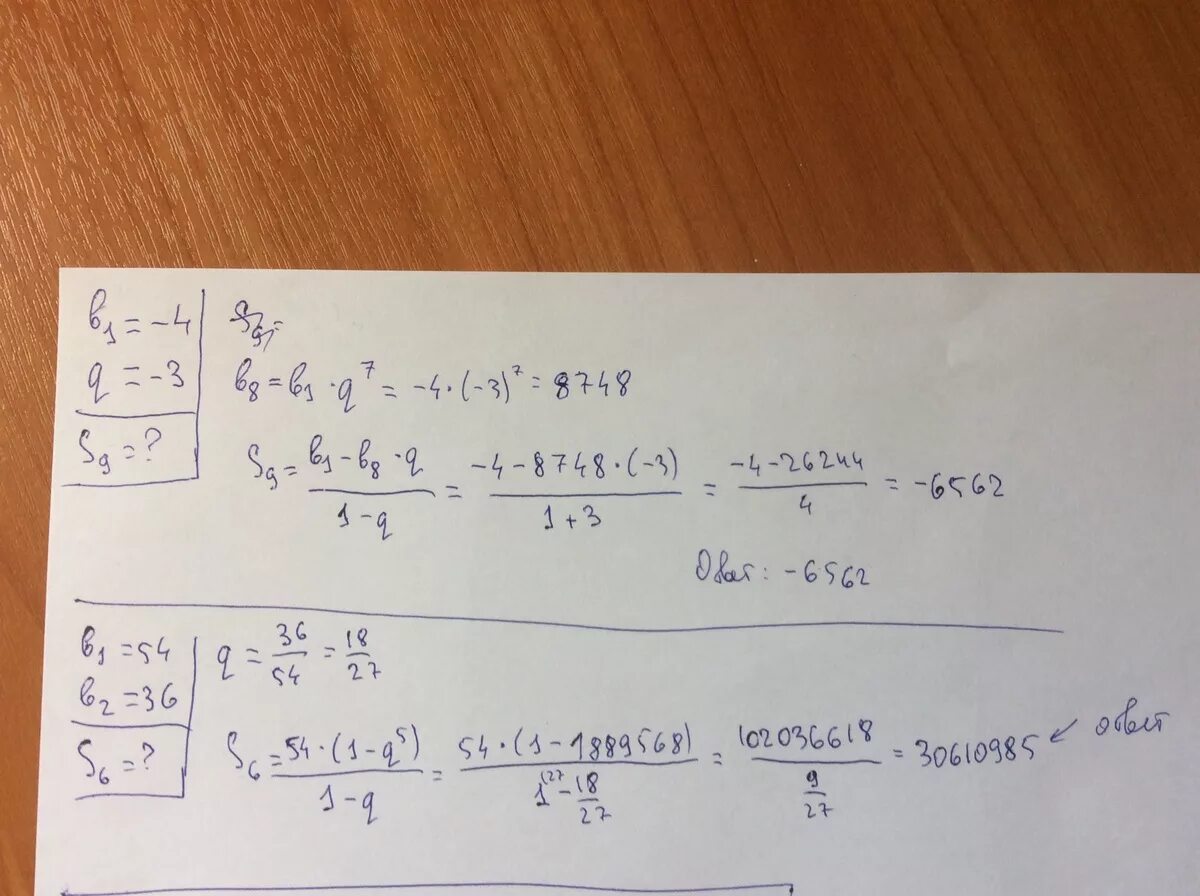 b₁ = -4
q = -3
S₉ = ?
S₉ =
b₈ = b₁ · q⁷ = -4 · (-3)⁷ = 8748
S₉ = (b₁ - b₈ · q) / (1 - q) = (-4 - 8748 · (-3)) / (1 + 3) = (-4 - 26244) / 4 = -6562
Ответ: -6562
b₁ = 54
b₂ = 36
S₆ = ?
q = 36/54 = 18/27
S₆ = (54 · (1 - q⁵)) / (1 - q) = (54 · (1 - 1889568)) / (1⁽²⁷ - 18/27) = 102036618 / (9/27) = 30610985 ↙ ответ